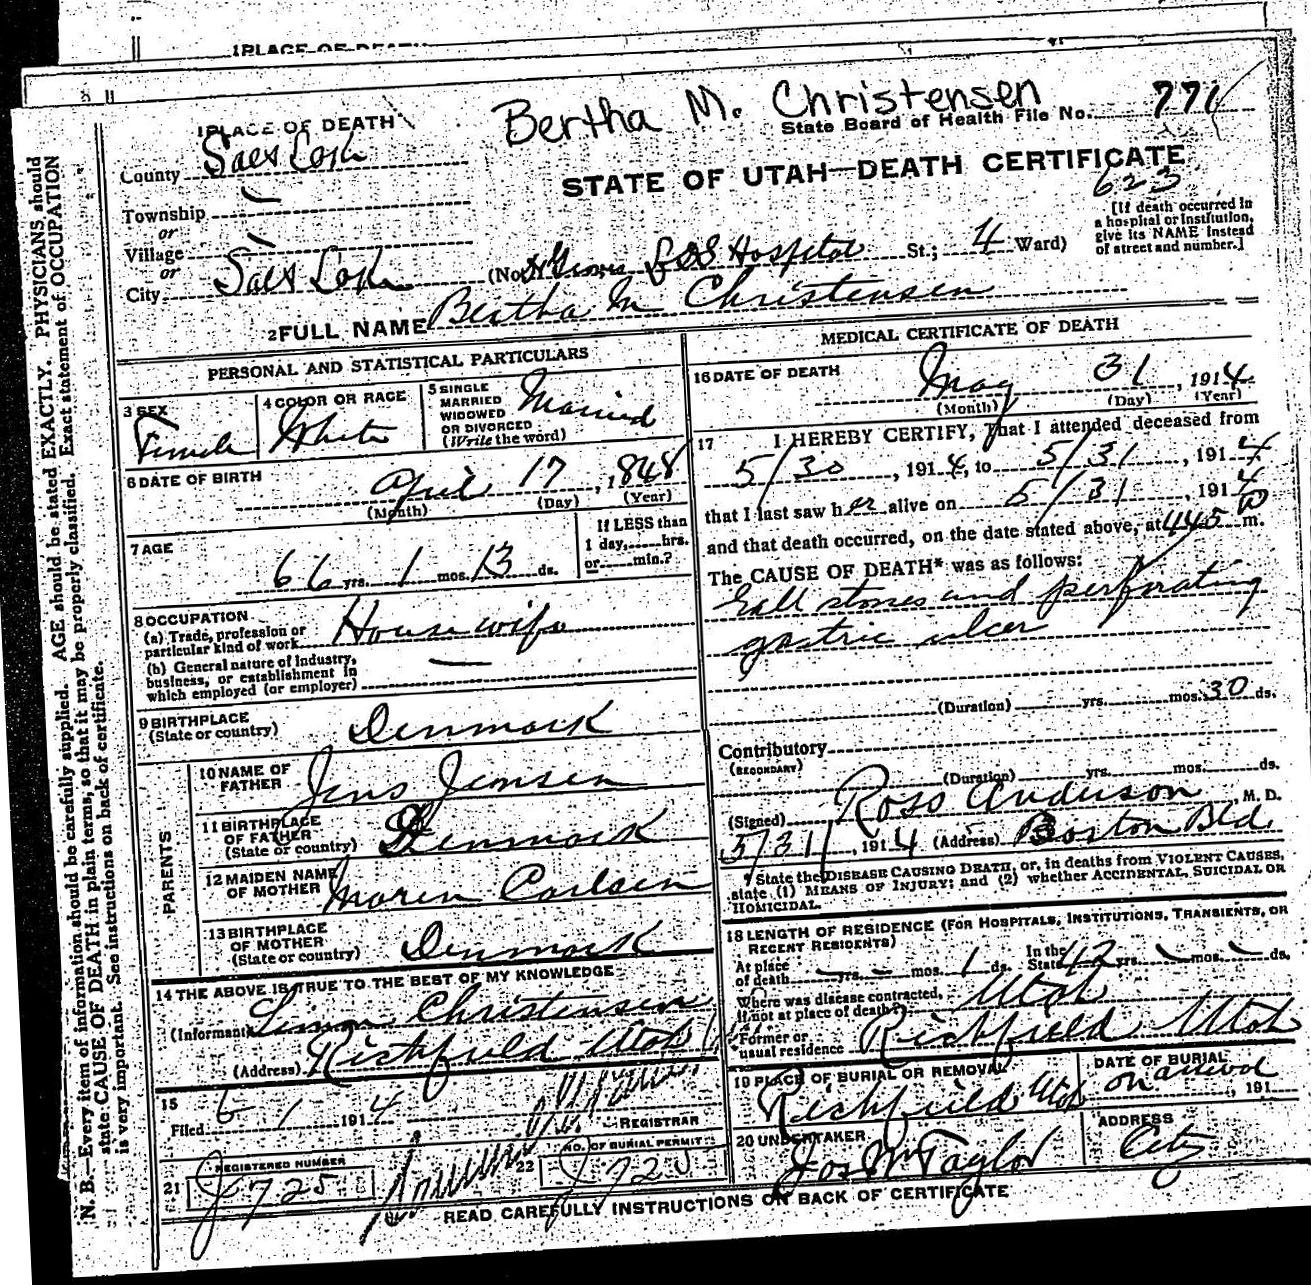 1 PLACE OF DEATH
Bertha M. Christensen
State Board of Health File No. 771
County Salt Lake
STATE OF UTAH—DEATH CERTIFICATE
623
Township
or
Village
or
City Salt Lake (No. L D S Hospital St.; 4 Ward)
[If death occurred in
a hospital or institution,
give its NAME instead
of street and number.]
2 FULL NAME Bertha M Christensen
PERSONAL AND STATISTICAL PARTICULARS
3 SEX
Female
4 COLOR OR RACE
White
5 SINGLE
MARRIED
WIDOWED
OR DIVORCED
(Write the word)
Married
6 DATE OF BIRTH
April 17, 1848
(Month) (Day) (Year)
7 AGE
66 yrs. 1 mos. 13 ds.
If LESS than
1 day, hrs.
or min.?
8 OCCUPATION
(a) Trade, profession or
particular kind of work Housewife
(b) General nature of industry,
business, or establishment in
which employed (or employer) —
9 BIRTHPLACE
(State or country) Denmark
PARENTS
10 NAME OF
FATHER Jens Jensen
11 BIRTHPLACE
OF FATHER
(State or country) Denmark
12 MAIDEN NAME
OF MOTHER Maren Carlsen
13 BIRTHPLACE
OF MOTHER
(State or country) Denmark
14 THE ABOVE IS TRUE TO THE BEST OF MY KNOWLEDGE
(Informant) Simon Christensen
(Address) Richfield Utah
15
Filed 6 1 1914
REGISTRAR
REGISTERED NUMBER
21 J 725
NO. OF BURIAL PERMIT
22 J 725
MEDICAL CERTIFICATE OF DEATH
16 DATE OF DEATH
May 31, 1914
(Month) (Day) (Year)
17 I HEREBY CERTIFY, That I attended deceased from
5/30, 1914, to 5/31, 1914
that I last saw her alive on 5/31, 1914
and that death occurred, on the date stated above, at 445 P m.
The CAUSE OF DEATH* was as follows:
Gall stones and perforating
gastric ulcer
(Duration) yrs. mos. 30 ds.
Contributory
(SECONDARY)
(Duration) yrs. mos. ds.
(Signed) Ross Anderson, M. D.
5/31, 1914 (Address) Boston Bld
* State the DISEASE CAUSING DEATH, or, in deaths from VIOLENT CAUSES,
state (1) MEANS OF INJURY; and (2) whether ACCIDENTAL, SUICIDAL OR
HOMICIDAL.
18 LENGTH OF RESIDENCE (FOR HOSPITALS, INSTITUTIONS, TRANSIENTS, OR
RECENT RESIDENTS)
At place
of death — yrs. — mos. 1 ds. In the
State 42 yrs. — mos. — ds.
Where was disease contracted,
if not at place of death? Utah
Former or
usual residence Richfield Utah
19 PLACE OF BURIAL OR REMOVAL
Richfield Utah
DATE OF BURIAL
on arrival, 191
20 UNDERTAKER
Jos Wm Taylor
ADDRESS
City
READ CAREFULLY INSTRUCTIONS ON BACK OF CERTIFICATE
N. B.—Every item of information should be carefully supplied. AGE should be stated EXACTLY. PHYSICIANS should
state CAUSE OF DEATH in plain terms, so that it may be properly classified. Exact statement of OCCUPATION
is very important. See instructions on back of certificate.